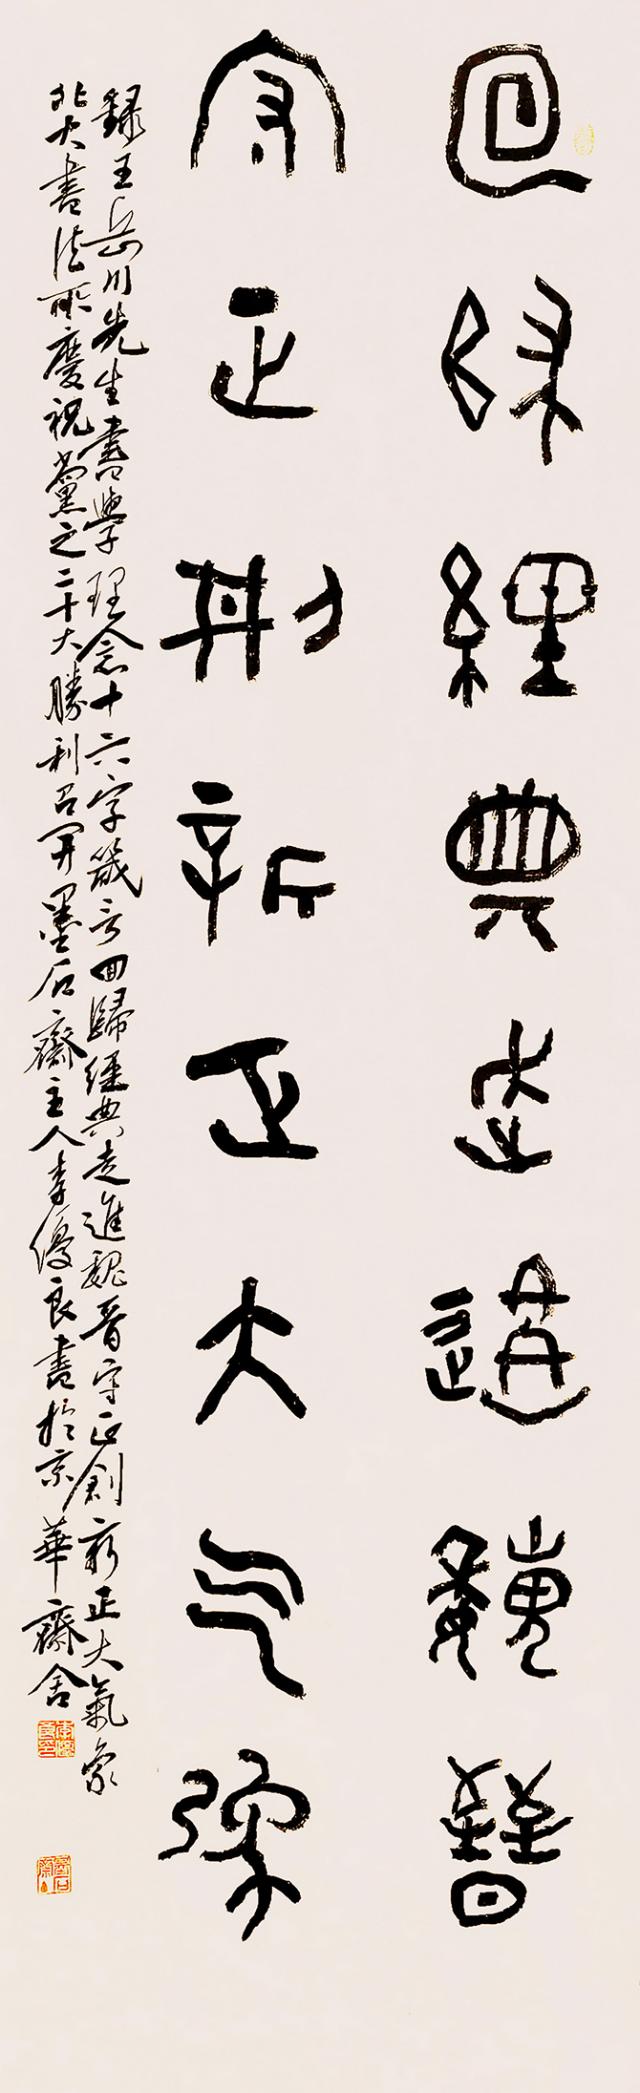 回歸經典走進魏晉
守正創新正大氣象
錄王岳川先生書學理念十六字箴言回歸經典走進魏晉守正創新正大氣象
北大書法所慶祝黨之二十大勝利召開墨石齋主人李優良書於京華齋舍